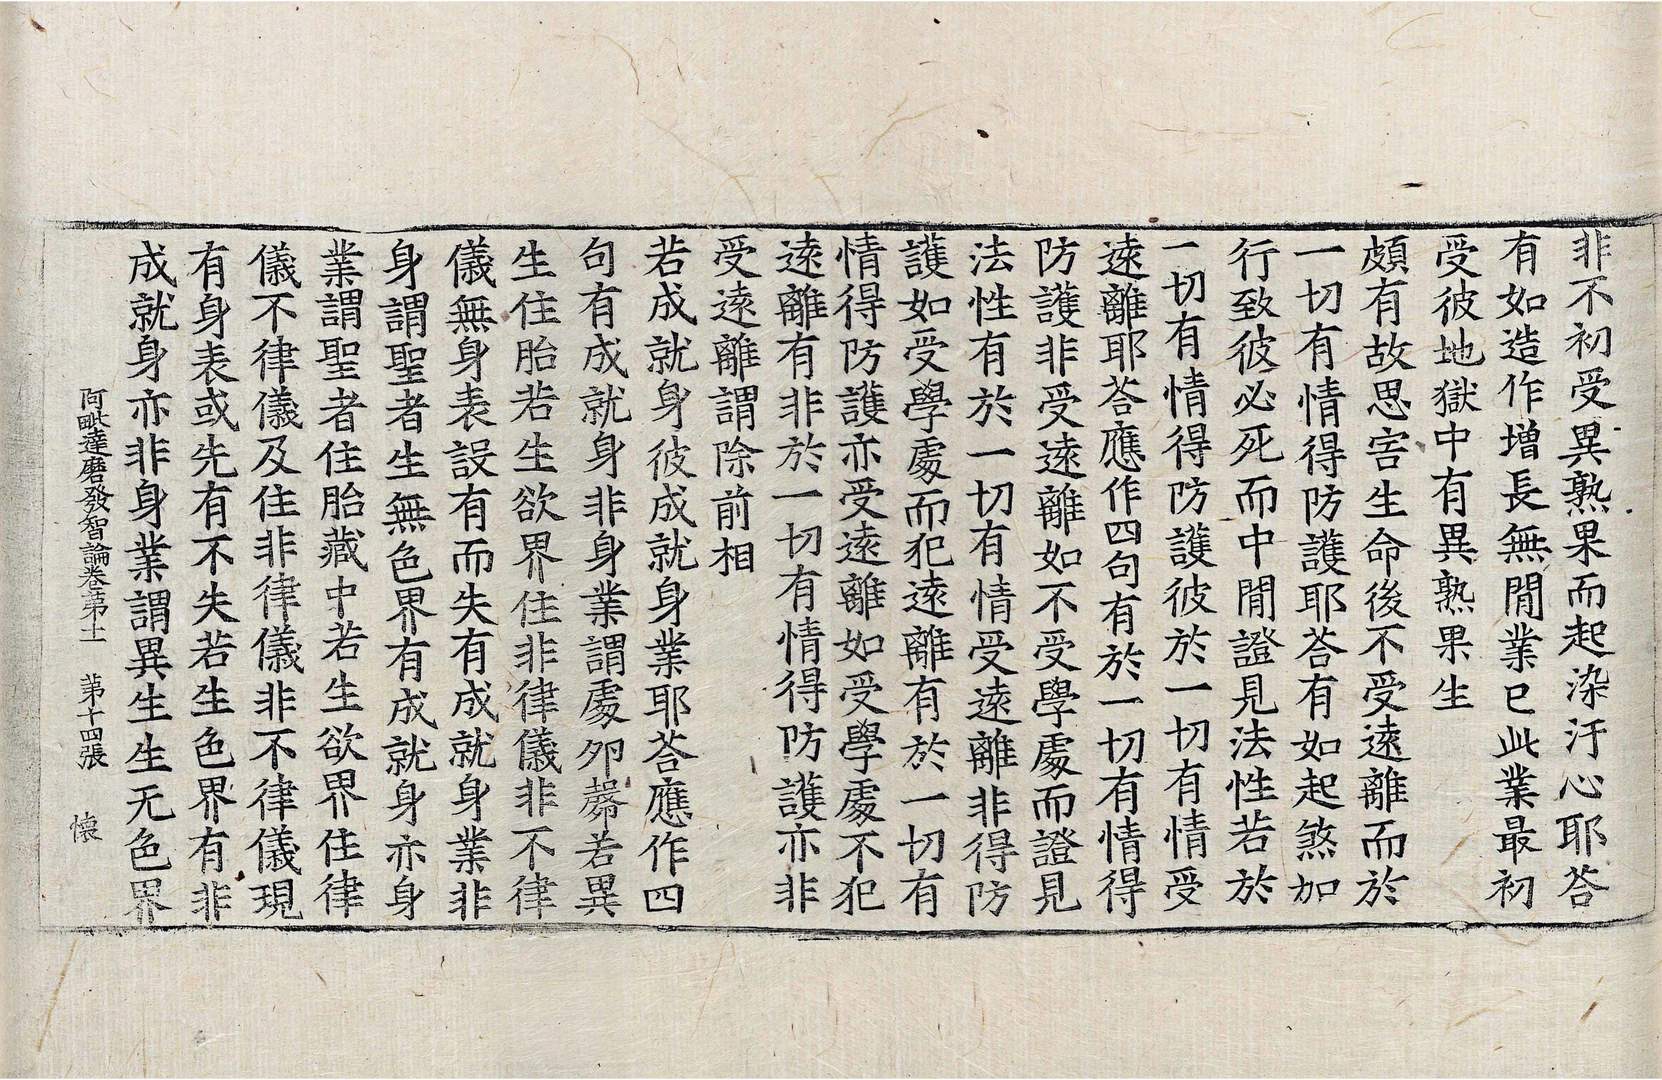 非不初受異熟果而起染汙心耶荅
有如造作增長無閒業已此業最初
受彼地獄中有異熟果生
頗有故思害生命後不受遠離而於
一切有情得防護耶荅有如起煞加
行致彼必死而中閒證見法性若於
一切有情得防護彼於一切有情受
遠離耶荅應作四句有於一切有情得
防護非受遠離如不受學處而證見
法性有於一切有情受遠離非得防
護如受學處而犯遠離有於一切有
情得防護亦受遠離如受學處不犯
遠離有非於一切有情得防護亦非
受遠離謂除前相
若成就身彼成就身業耶荅應作四
句有成就身非身業謂處夘㲉若異
生住胎若生欲界住非律儀非不律
儀無身表設有而失有成就身業非
身謂聖者生無色界有成就身亦身
業謂聖者住胎藏中若生欲界住律
儀不律儀及住非律儀非不律儀現
有身表或先有不失若生色界有非
成就身亦非身業謂異生生无色界
阿毗達磨發智論卷第十一 第十四張 懷